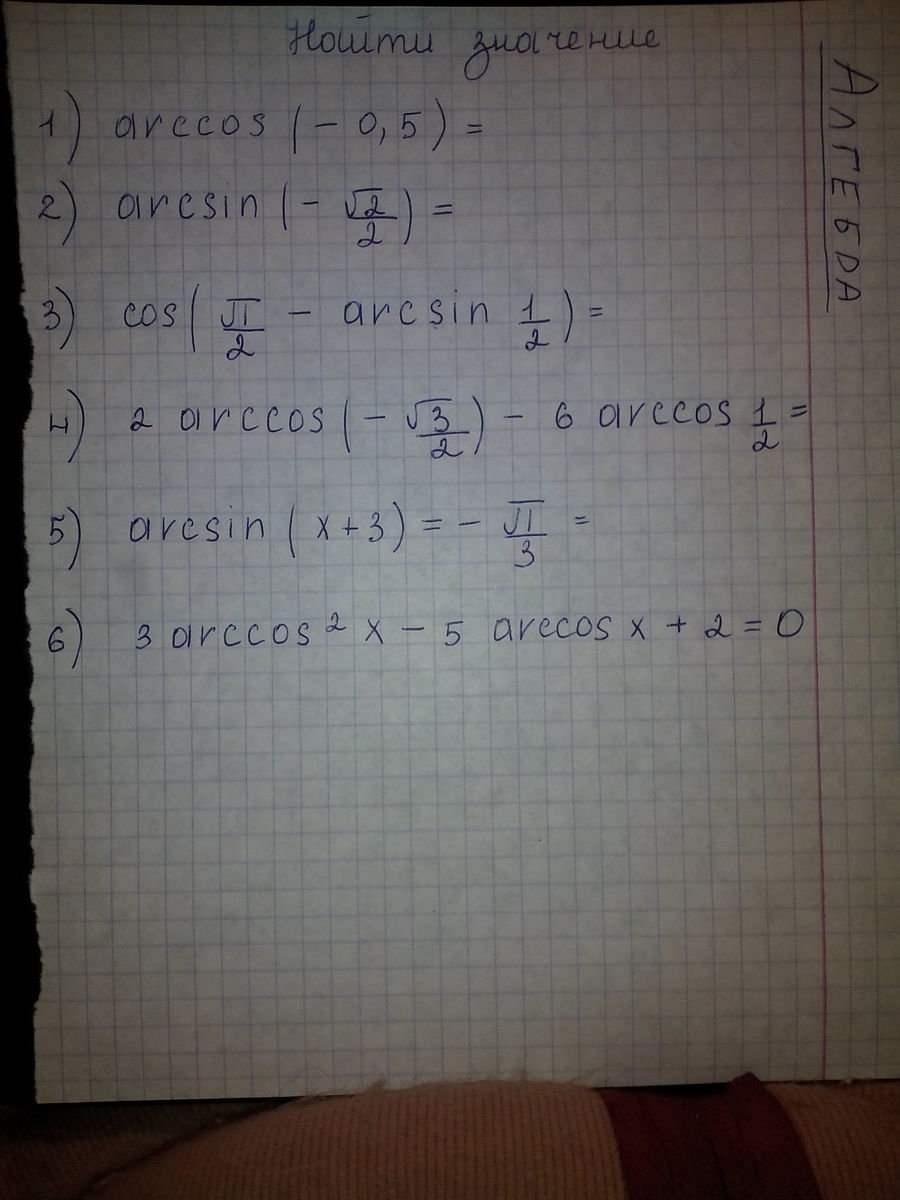 Найти значение
АЛГЕБРА
1) arccos (- 0,5) =
2) arcsin (- √2/2) =
3) cos( π/2 - arcsin 1/2) =
4) 2 arccos(- √3/2) - 6 arccos 1/2 =
5) arcsin (x+3) = - π/3 =
6) 3 arccos² x - 5 arccos x + 2 = 0